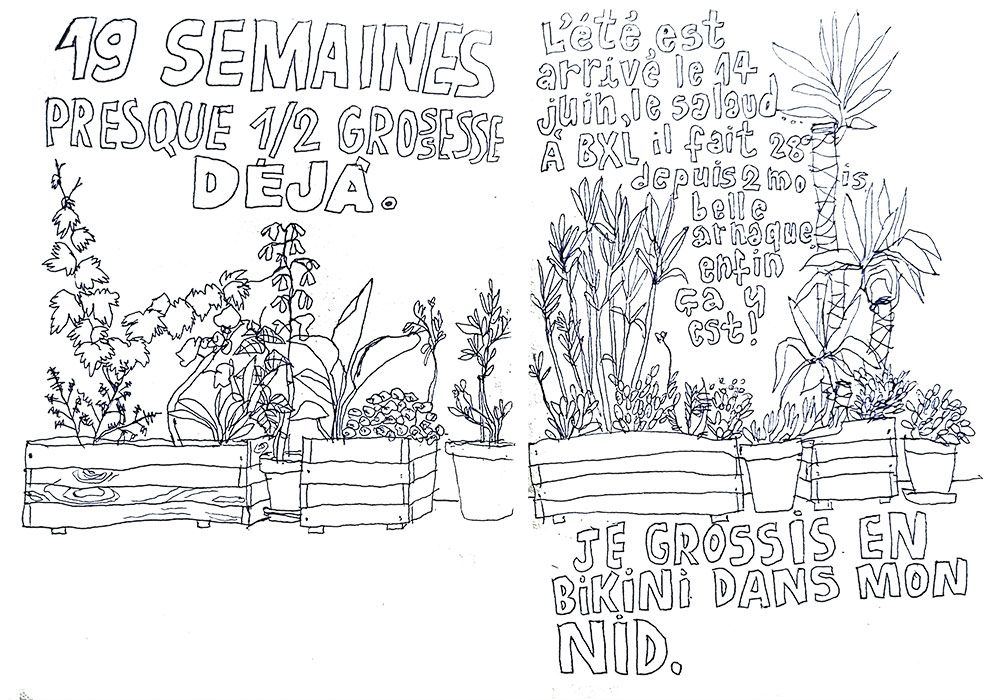 19 SEMAINES
PRESQUE 1/2 GROSSESSE
DÉJÀ.
L'été est
arrivé le 14
juin, le salaud...
À BXL il fait 28°
depuis 2 mois,
belle
arnaque,
enfin
ça y
est!
JE GROSSIS EN
BiKiNi DANS MON
NiD.